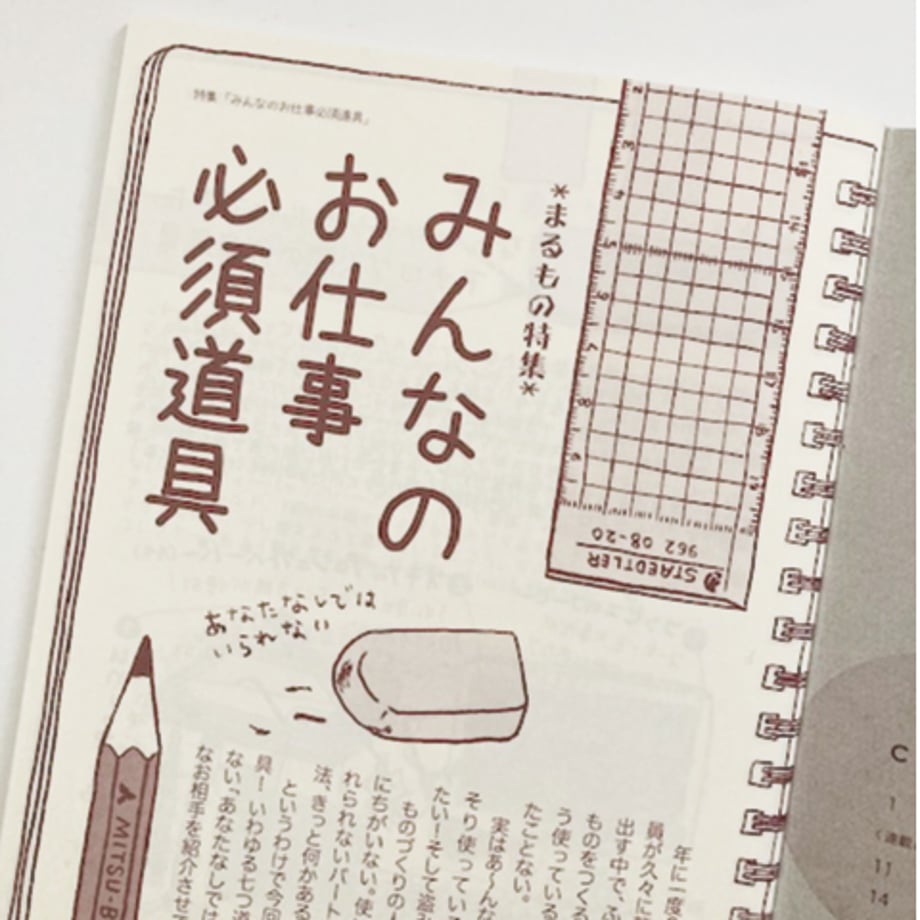 特集「みんなのお仕事必須道具」
*まるもの特集*
みんなの
お仕事
必須道具
STAEDTLER
962 08-20
2
3
4
5
6
8
9
あなたなしでは
いられない
MITSU-B
年に一度
員が久々に
出す中で、ふ
ものをつくる
う使っている
たことない。
実はあ〜んな
そり使っている
たい！そして盗み
ものづくりの
にちがいない。使
れられないパート
法、きっと何かある
というわけで今回
具！いわゆる七つ道
ない「あなたなしでは
なお相手を紹介させて
C
1
〈連載
11
14